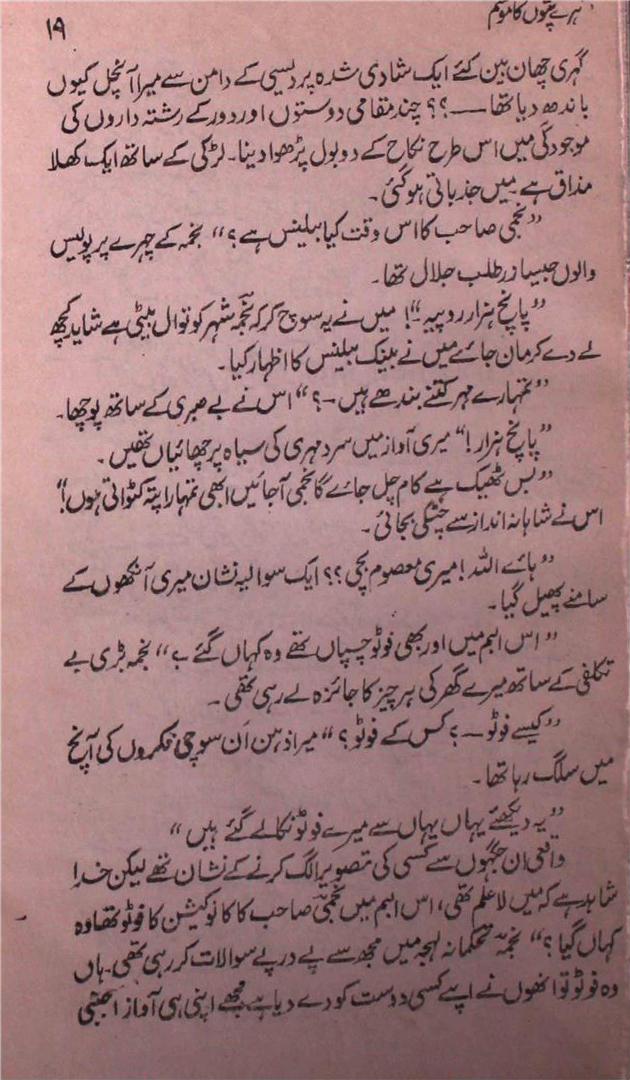 ہرے پتوں کا موسم
۱۹
گہری چھان بین کئے ایک شادی شدہ پردیسی کے دامن سے میرا آنچل کیوں
باندھ دیا تھا ــــ؟؟ چند مقامی دوستوں اور دور کے رشتہ داروں کی
موجودگی میں اس طرح نکاح کے دو بول پڑھوا دینا۔ لڑکی کے ساتھ ایک کھلا
مذاق ہے میں جذباتی ہو گئی۔
”نجمی صاحب کا اس وقت کیا بیلینس ہے؟“ نجمہ کے چہرے پر پولیس
والوں جیسا زر طلب جلال تھا۔
”پانچ ہزار روپیہ۔“! میں نے یہ سوچ کر کہ نجمہ شہر کوتوال بیٹی ہے شاید کچھ
لے دے کر مان جائے میں نے بینک بیلینس کا اظہار کیا۔
”تمہارے مہر کتنے بندھے ہیں۔؟“ اس نے بے صبری کے ساتھ پوچھا۔
”پانچ ہزار!“ میری آواز میں سرد مہری کی سیاہ پرچھائیاں تھیں۔
”بس ٹھیک ہے کام چل جائے گا نجمی آ جائیں ابھی تمہارا پتہ کٹواتی ہوں!“
اس نے شاہانہ انداز سے چٹکی بجائی۔
”ہائے اللہ! میری معصوم بچی؟؟ ایک سوالیہ نشان میری آنکھوں کے
سامنے پھیل گیا۔
”اس البم میں اور بھی فوٹو چسپاں تھے وہ کہاں گئے؟“ نجمہ بڑی بے
تکلفی کے ساتھ میرے گھر کی ہر چیز کا جائزہ لے رہی تھی۔
”کیسے فوٹو ــ؟ کس کے فوٹو؟“ میرا ذہن اَن سوچی فکروں کی آنچ
میں سلگ رہا تھا۔
”یہ دیکھئے یہاں یہاں سے میرے فوٹو نکالے گئے ہیں“
واقعی ان جگہوں سے کسی کی تصویر الگ کرنے کے نشان تھے لیکن خدا
شاہد ہے کہ میں لاعلم تھی، اس البم میں نجمی صاحب کا کانوکیشن کا فوٹو تھا وہ
کہاں گیا؟“ نجمہ تحکمانہ لہجہ میں مجھ سے پے در پے سوالات کر رہی تھی۔ ہاں
وہ فوٹو تو انھوں نے اپنے کسی دوست کو دے دیا ہے مجھے اپنی ہی آواز اجنبی